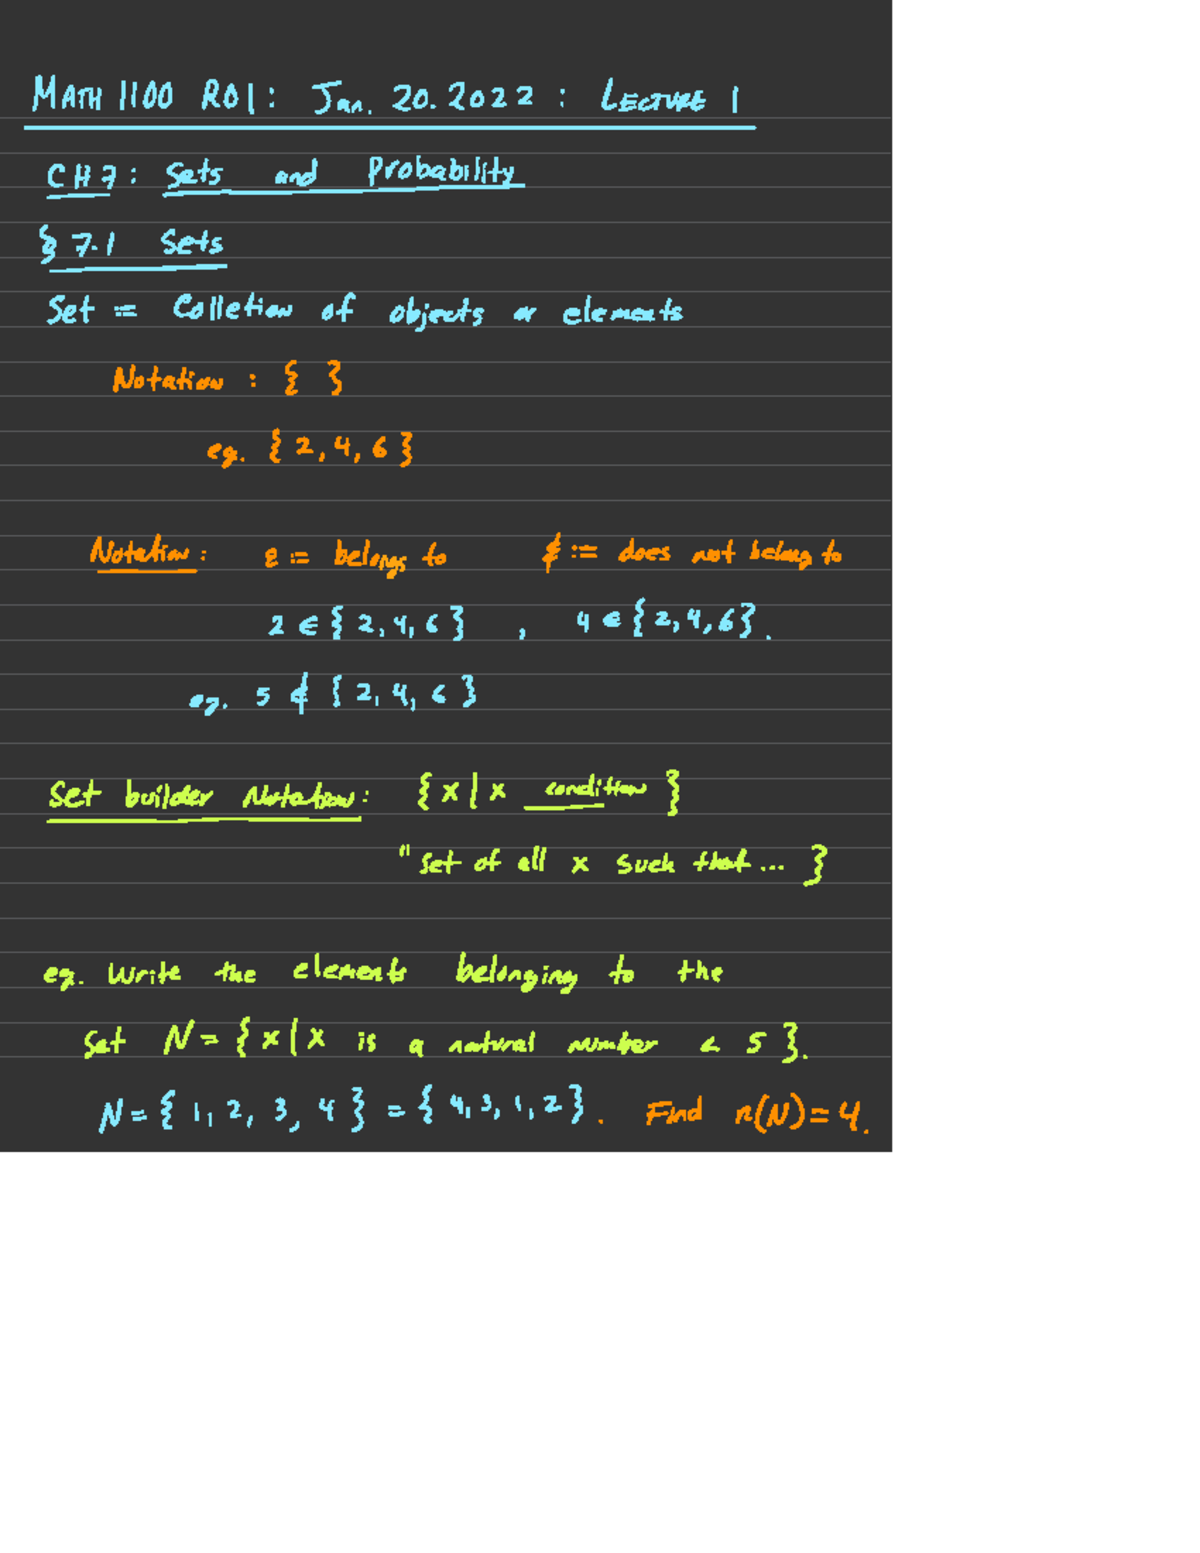 MATH 1100 R01: Jan. 20. 2022 : LECTURE 1
CH 7: Sets and Probability
§ 7.1 Sets
Set := Colletion of objects or elements
Notation : { }
eg. { 2, 4, 6 }
Notation: ε := belongs to ∉ := does not belong to
2 ∈ { 2, 4, 6 } , 4 ∈ { 2, 4, 6 }.
eg. 5 ∉ { 2, 4, 6 }
Set builder Notation: { x | x condition }
"set of all x such that ... }
eg. Write the elements belonging to the
Set N = { x | x is a natural number < 5 }.
N = { 1, 2, 3, 4 } = { 4, 3, 1, 2 }. Find n(N) = 4.